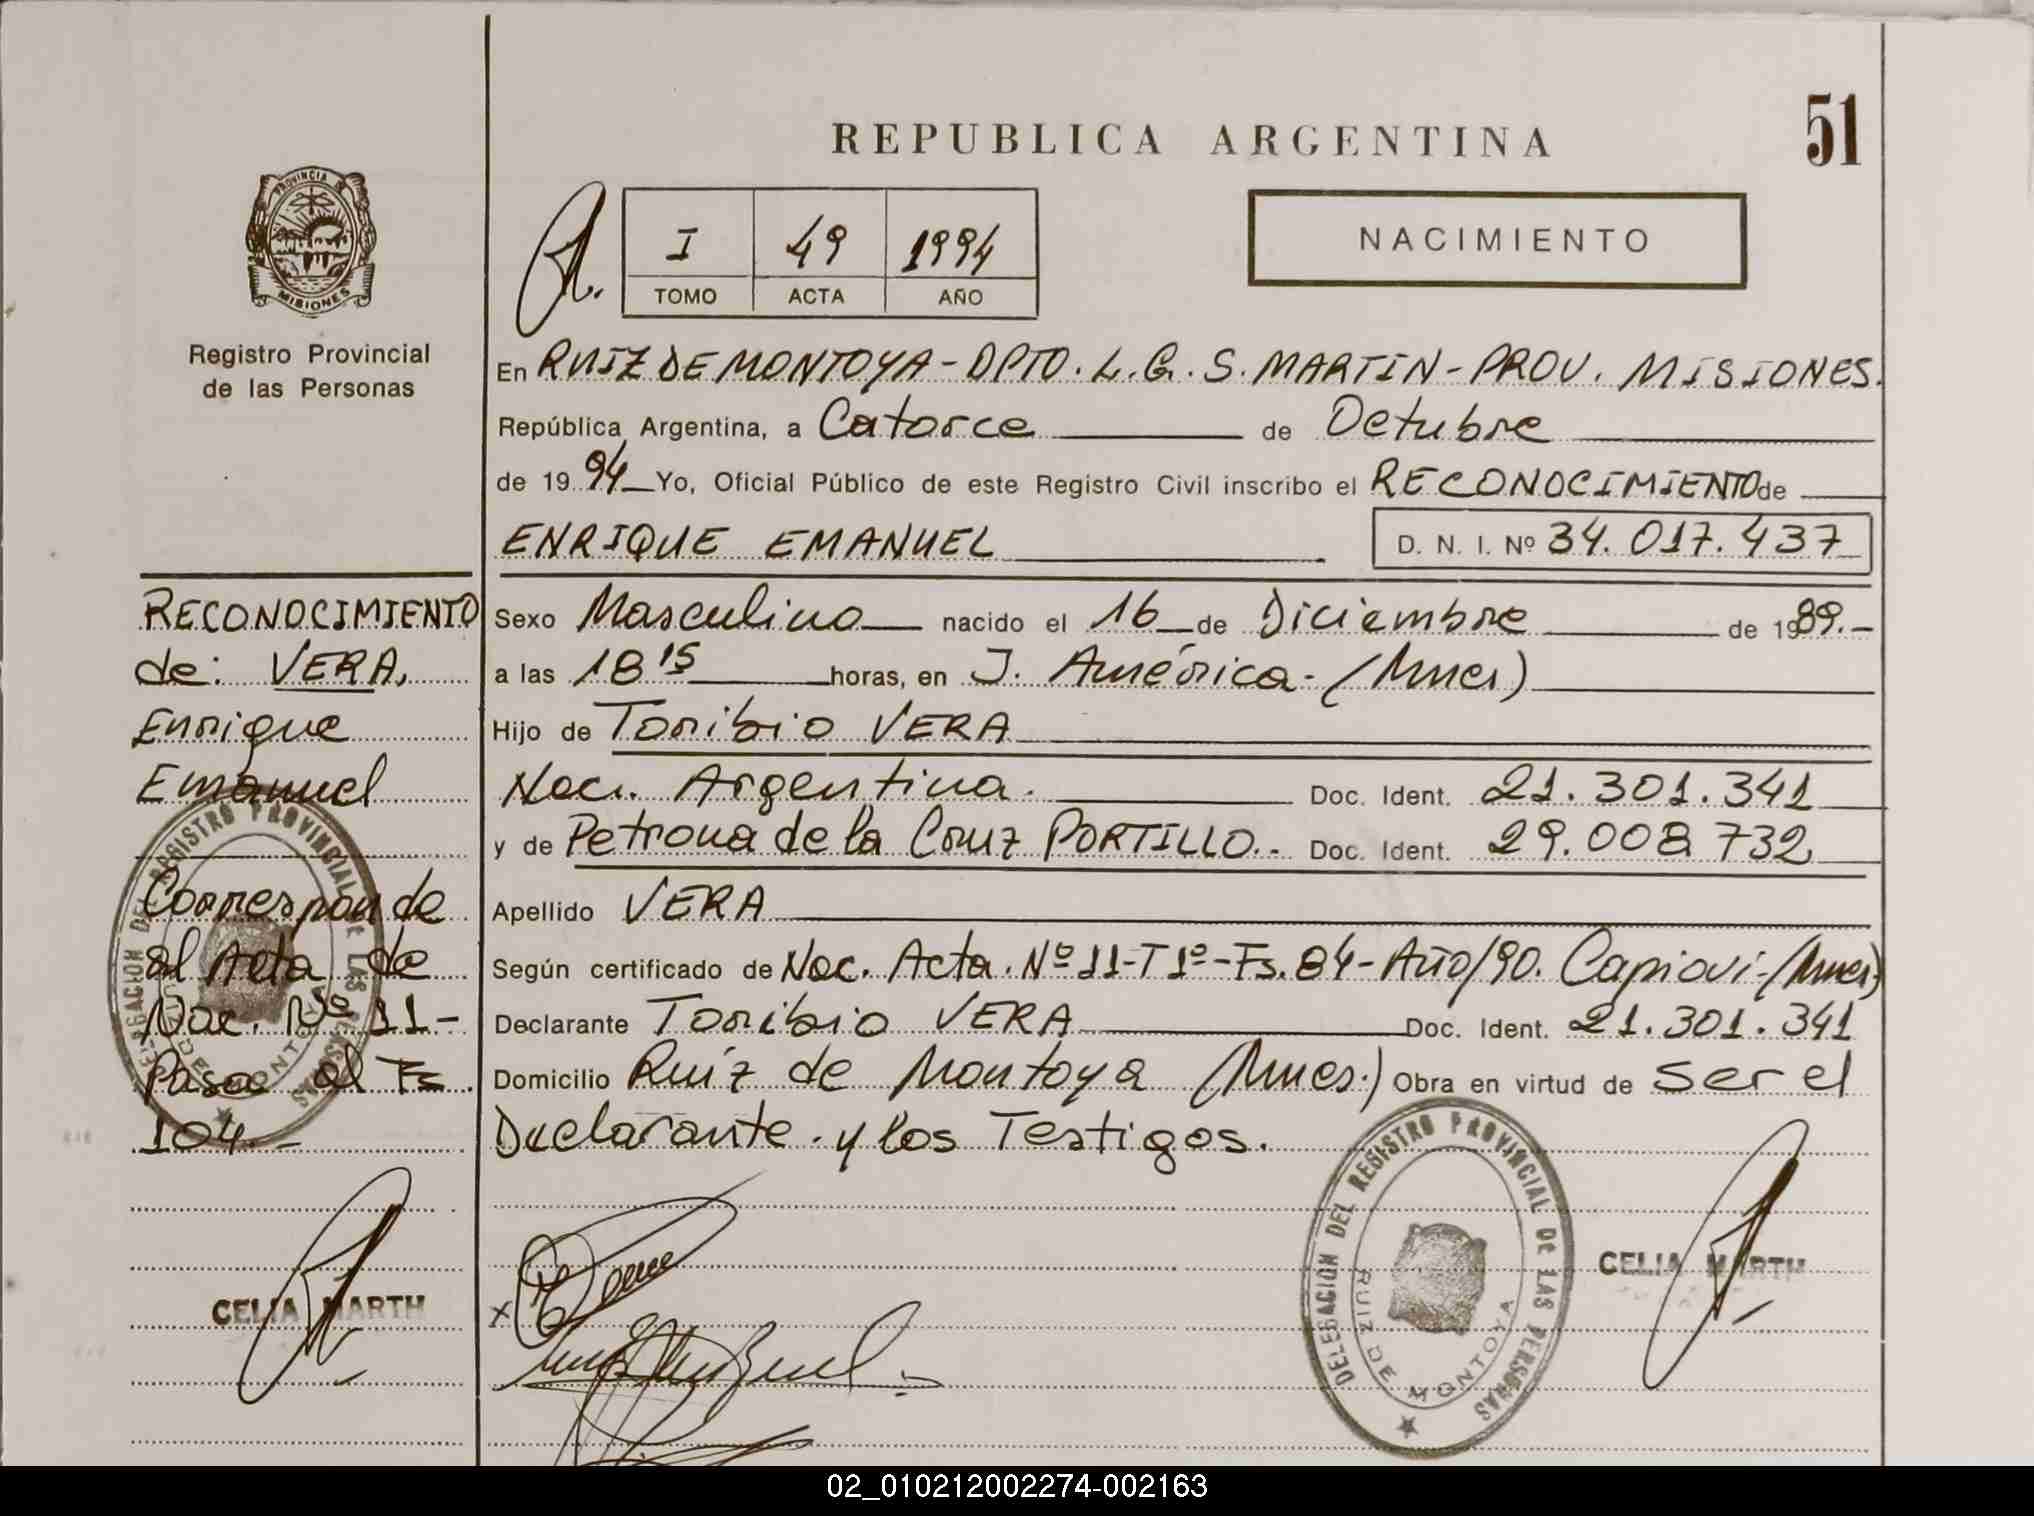 51
REPUBLICA ARGENTINA
PROVINCIA
MISIONES
Registro Provincial
de las Personas
I 49 1994
TOMO ACTA AÑO
NACIMIENTO
En RUIZ DE MONTOYA - DPTO. L. G. S. MARTIN - PROV. MISIONES.
República Argentina, a Catorce de Octubre
de 1994 Yo, Oficial Público de este Registro Civil inscribo el RECONOCIMIENTO de
ENRIQUE EMANUEL D. N. I. Nº 34.017.437
Sexo Masculino nacido el 16 de Diciembre de 1989.-
a las 18 15 horas, en J. América - (Mnes)
Hijo de Toribio VERA
Nac. Argentina. Doc. Ident. 21.301.341
y de Petrona de la Cruz PORTILLO.- Doc. Ident. 29.008.732
Apellido VERA
Según certificado de Nac. Acta. Nº 11-T 1º-Fs. 84-Año/90. Capioví-(Mnes)
Declarante Toribio VERA Doc. Ident. 21.301.341
Domicilio Ruíz de Montoya (Mnes.) Obra en virtud de ser el
Declarante. y los Testigos.
RECONOCIMIENTO
de: VERA,
Enrique
Emanuel
Corresponde
al Acta de
Nac. Nº 11-
Pasa al Fs
104.-
DELEGACION DEL REGISTRO PROVINCIAL DE LAS PERSONAS
RUIZ DE MONTOYA
CELIA MARTH
DELEGACION DEL REGISTRO PROVINCIAL DE LAS PERSONAS
RUIZ DE MONTOYA
CELIA MARTH
02_010212002274-002163